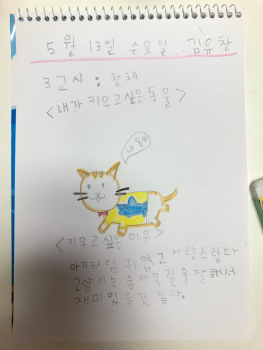 5월 13일 수요일 김유창
3교시 : 창체
<내가 키우고싶은 동물>
나 몰라
<키우고싶은 이유>
아기처럼 귀엽고 사랑스럽다
고양이는 음방꾸질을 잘해서
재미있을것 같다.